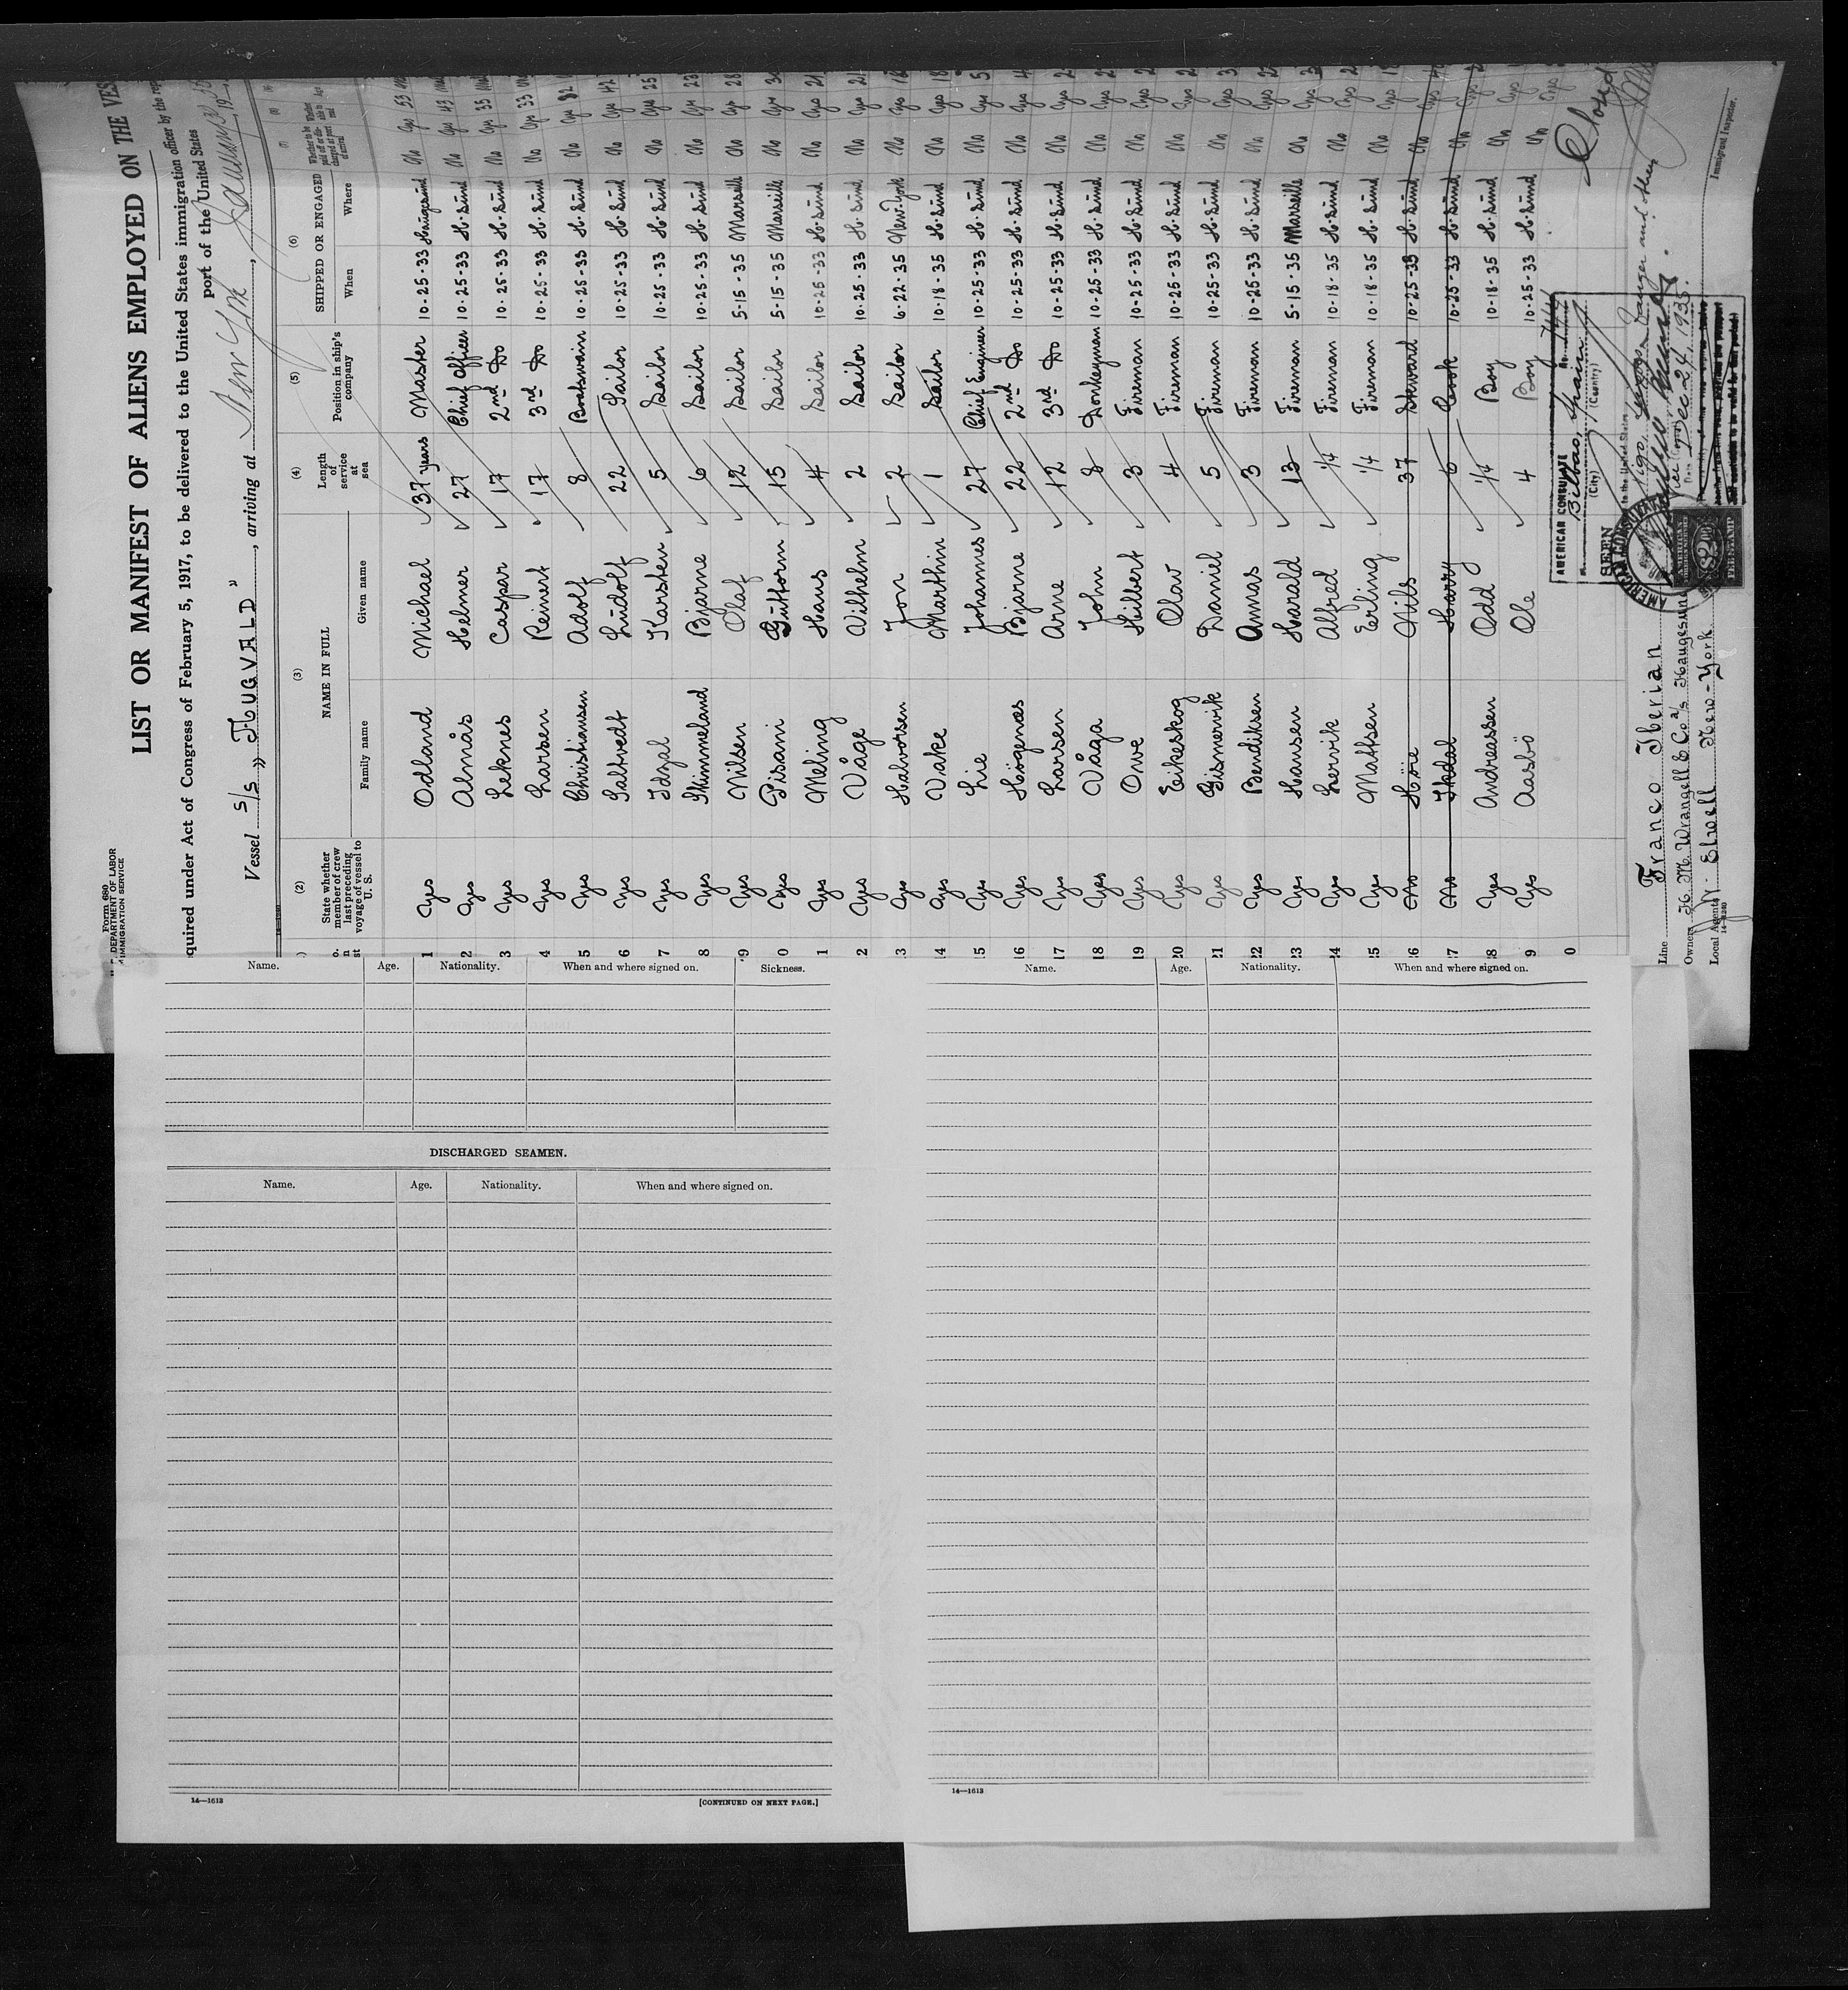 Form 680
U. S. DEPARTMENT OF LABOR
IMMIGRATION SERVICE
LIST OR MANIFEST OF ALIENS EMPLOYED ON THE VES
equired under Act of Congress of February 5, 1917, to be delivered to the United States immigration officer by the rep
port of the United States
Vessel S/S „TUGVALD”, arriving at New York, January 19
(2) (3) (4) (5) (6) (7) (8)
State whether member of crew last preceding voyage of vessel to U. S. NAME IN FULL Family name Given name Length of service at sea Position in ship's company SHIPPED OR ENGAGED When Where Whether to be paid off or discharged at port of arrival
1 Yes Odland Michael 37 years Master 10-25-33 Haugesund No Yes 53
2 Yes Almås Helmer 27 Chief Officer 10-25-33 H.Sund No Yes 43
3 Yes Leknes Caspar 17 2nd Do 10-25-33 H.Sund No Yes 35
4 Yes Larsen Reinert 17 3rd Do 10-25-33 H.Sund No Yes 33
5 Yes Christiansen Adolf 8 Boatswain 10-25-33 H.Sund No Yes
6 Yes Saltvedt Ludolf 22 Sailor 10-25-33 H.Sund No Yes 42
7 Yes Idsal Karsten 5 Sailor 10-25-33 H.Sund No Yes 25
8 Yes Skimmeland Bjarne 6 Sailor 10-25-33 H.Sund No Yes 23
9 Yes Nilsen Olaf 12 Sailor 5-15-35 Marseille No Yes 28
0 Yes Pisani Guttorm 15 Sailor 5-15-35 Marseille No Yes
1 Yes Meling Hans 4 Sailor 10-25-33 H.Sund No Yes
2 Yes Våge Vilhelm 2 Sailor 10-25-33 H.Sund No Yes
3 Yes Halvorsen Jon 2 Sailor 6-22-35 New-York No Yes
14 Yes Vake Marthin 1 Sailor 10-18-35 H.Sund No Yes
15 Yes Lie Johannes 27 Chief Engineer 10-25-33 H.Sund No Yes
16 Yes Högenæs Bjarne 22 2nd Do 10-25-33 H.Sund No Yes
17 Yes Larsen Arne 12 3rd Do 10-25-33 H.Sund No Yes
18 Yes Våga John 8 Donkeyman 10-25-33 H.Sund No Yes
19 Yes Owe Hilbert 3 Fireman 10-25-33 H.Sund No Yes
20 Yes Eikeskog Olav 4 Fireman 10-25-33 H.Sund No Yes
21 Yes Gismervik Daniel 5 Fireman 10-25-33 H.Sund No Yes
22 Yes Bendiksen Annas 3 Fireman 10-25-33 H.Sund No Yes
23 Yes Hansen Harald 13 Fireman 5-15-35 Marseille No Yes
24 Yes Lervik Alfred 1/4 Fireman 10-18-35 H.Sund No Yes
25 Yes Mattsen Erling 1/4 Fireman 10-18-35 H.Sund No Yes
26 No Höie Nils 37 Steward 10-25-33 H.Sund No Yes
27 No Ikdal Harry 6 Cook 10-25-33 H.Sund No Yes
28 Yes Andreassen Odd 1/4 Boy 10-18-35 H.Sund No Yes
29 Yes Aasbö Ole 4 Boy 10-25-33 H.Sund No Yes
0
AMERICAN CONSULATE
Bilbao, Spain
(City) (Country)
SEEN
Dec. 24, 1935.
AMERICAN CONSULATE
$2.00
FEE STAMP
Line Franco Iberian
Owners H. M. Wrangell & Co a/s Haugesund
Local Agents Elwell New-York
14-1240
Immigrant Inspector.
Name. Age. Nationality. When and where signed on. Sickness.
DISCHARGED SEAMEN.
Name. Age. Nationality. When and where signed on.
14—1613
[CONTINUED ON NEXT PAGE.]
Name. Age. Nationality. When and where signed on.
14—1613